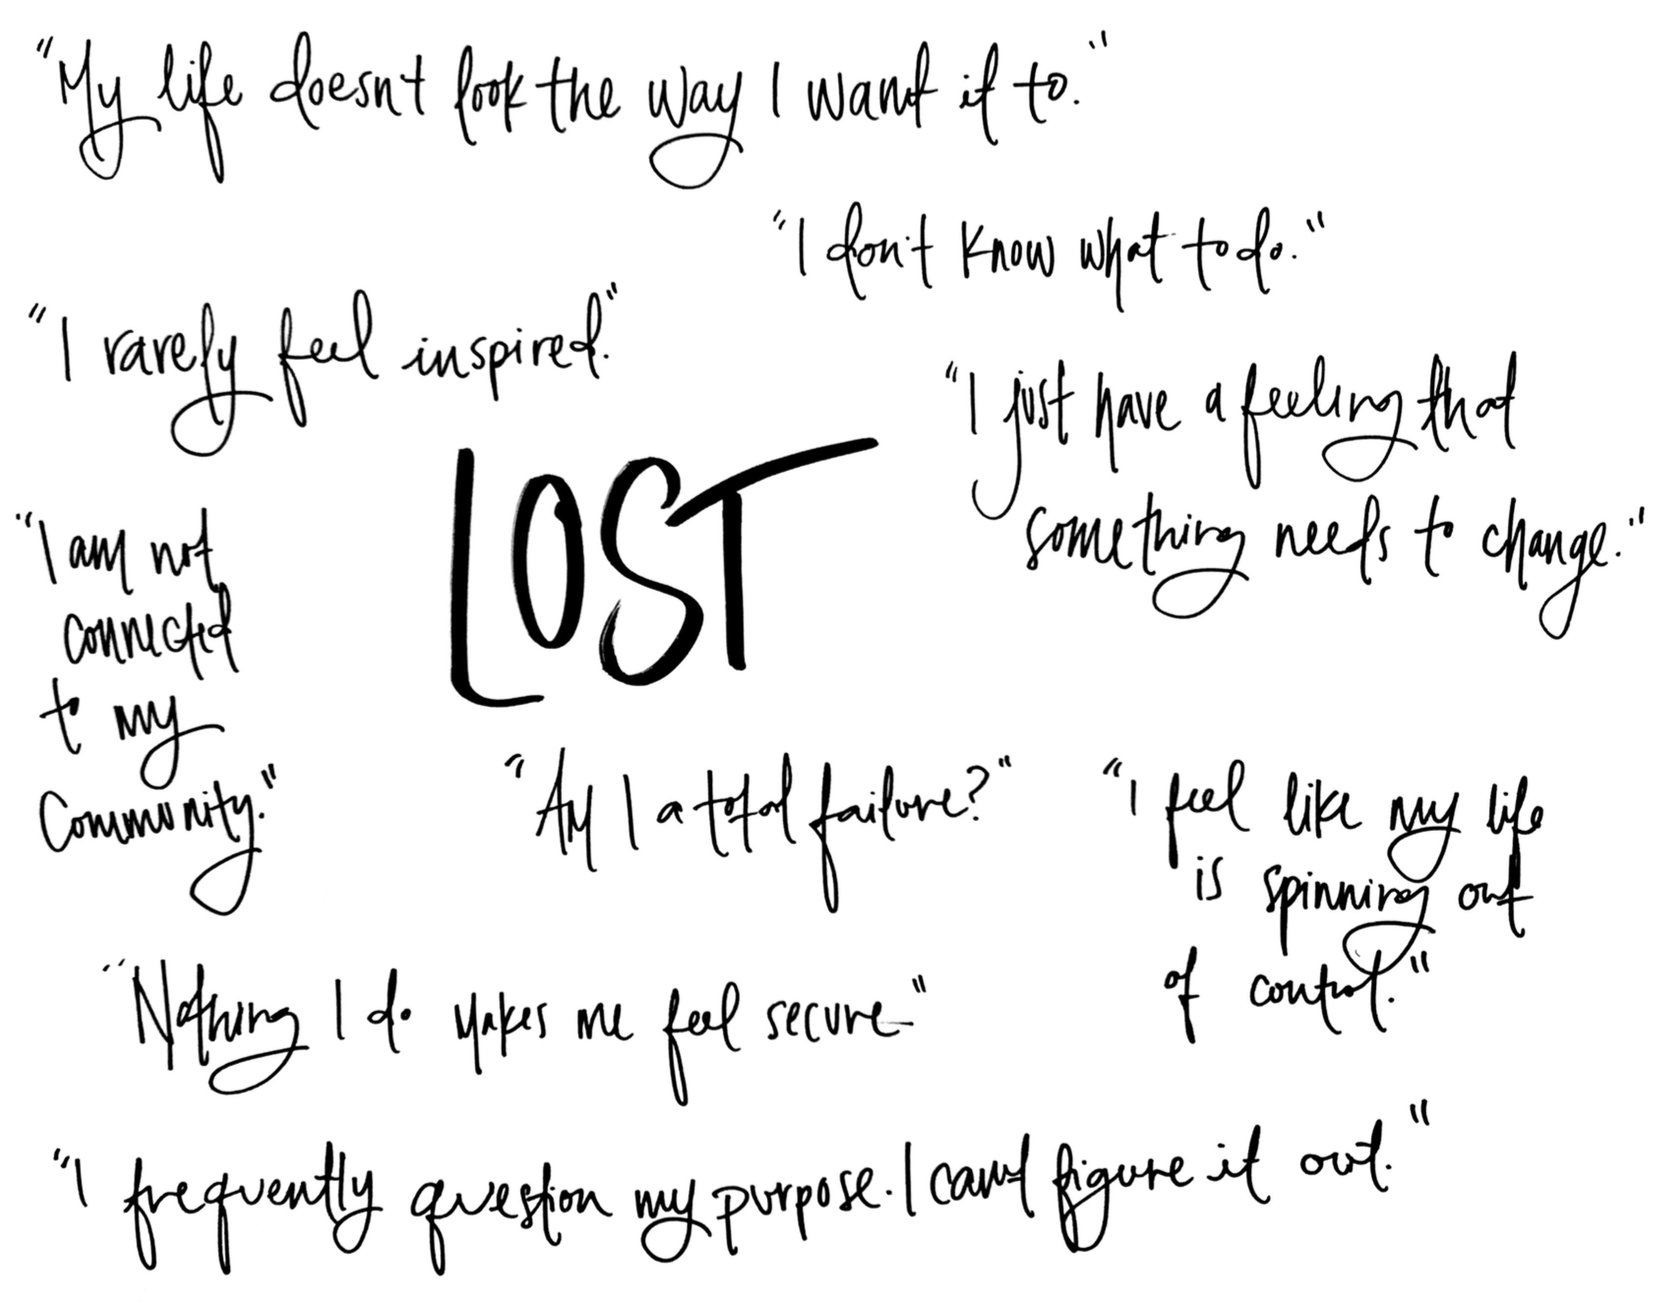 "My life doesn't look the way I want it to."
"I don't know what to do."
"I rarely feel inspired."
"I just have a feeling that
something needs to change."
LOST
"I am not
connected
to my
Community."
"Am I a total failure?"
"I feel like my life
is spinning out
of control."
"Nothing I do makes me feel secure"
"I frequently question my purpose. I can't figure it out."